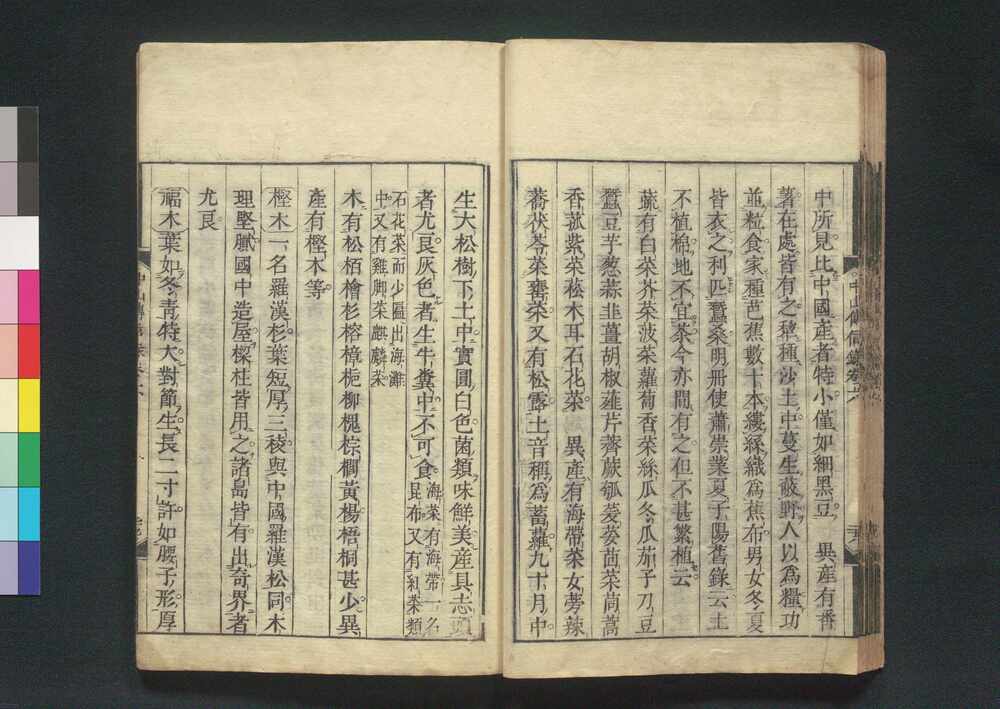 中所見比中國產者特小僅如細黑豆　異產有番
薯在處皆有之犂種沙土中蔓生蔽野人以爲糧功
並粒食家種芭蕉數十本縷絲織爲蕉布男女冬夏
皆衣之利匹蠶桑明册使蕭崇業夏子陽舊錄云土
不植棉地不宜茶今亦間有之但不甚繁植云
蔬有白菜芥菜菠菜蘿蔔香菜絲瓜冬瓜茄子刀豆
蠶豆芋葱蒜韭薑胡椒薤芹薺蕨瓠菱茭茴菜茼蒿
香菰紫菜菘木耳石花菜　異產有海帶菜女蒡辣
蕎伏苓菜甕菜又有松露土音稱爲蓄蘿九十月中
生大松樹下土中實圓白色菌類味鮮美産具志頭
者尤良灰色者生牛糞中不可食海菜有海帶一名
昆布又有紅菜類
石花菜而少匾出海灘
中又有雞脚菜麒麟菜
木有松栢檜杉榕樟梔柳槐棕櫚黃楊梧桐甚少異
產有樫木等
樫木一名羅漢杉葉短厚三稜與中國羅漢松同木
理堅膩國中造屋樑柱皆用之諸島皆有出奇界者
尤良
福木葉如冬青特大對節生長二寸許如腰子形厚
中山傳信錄卷六